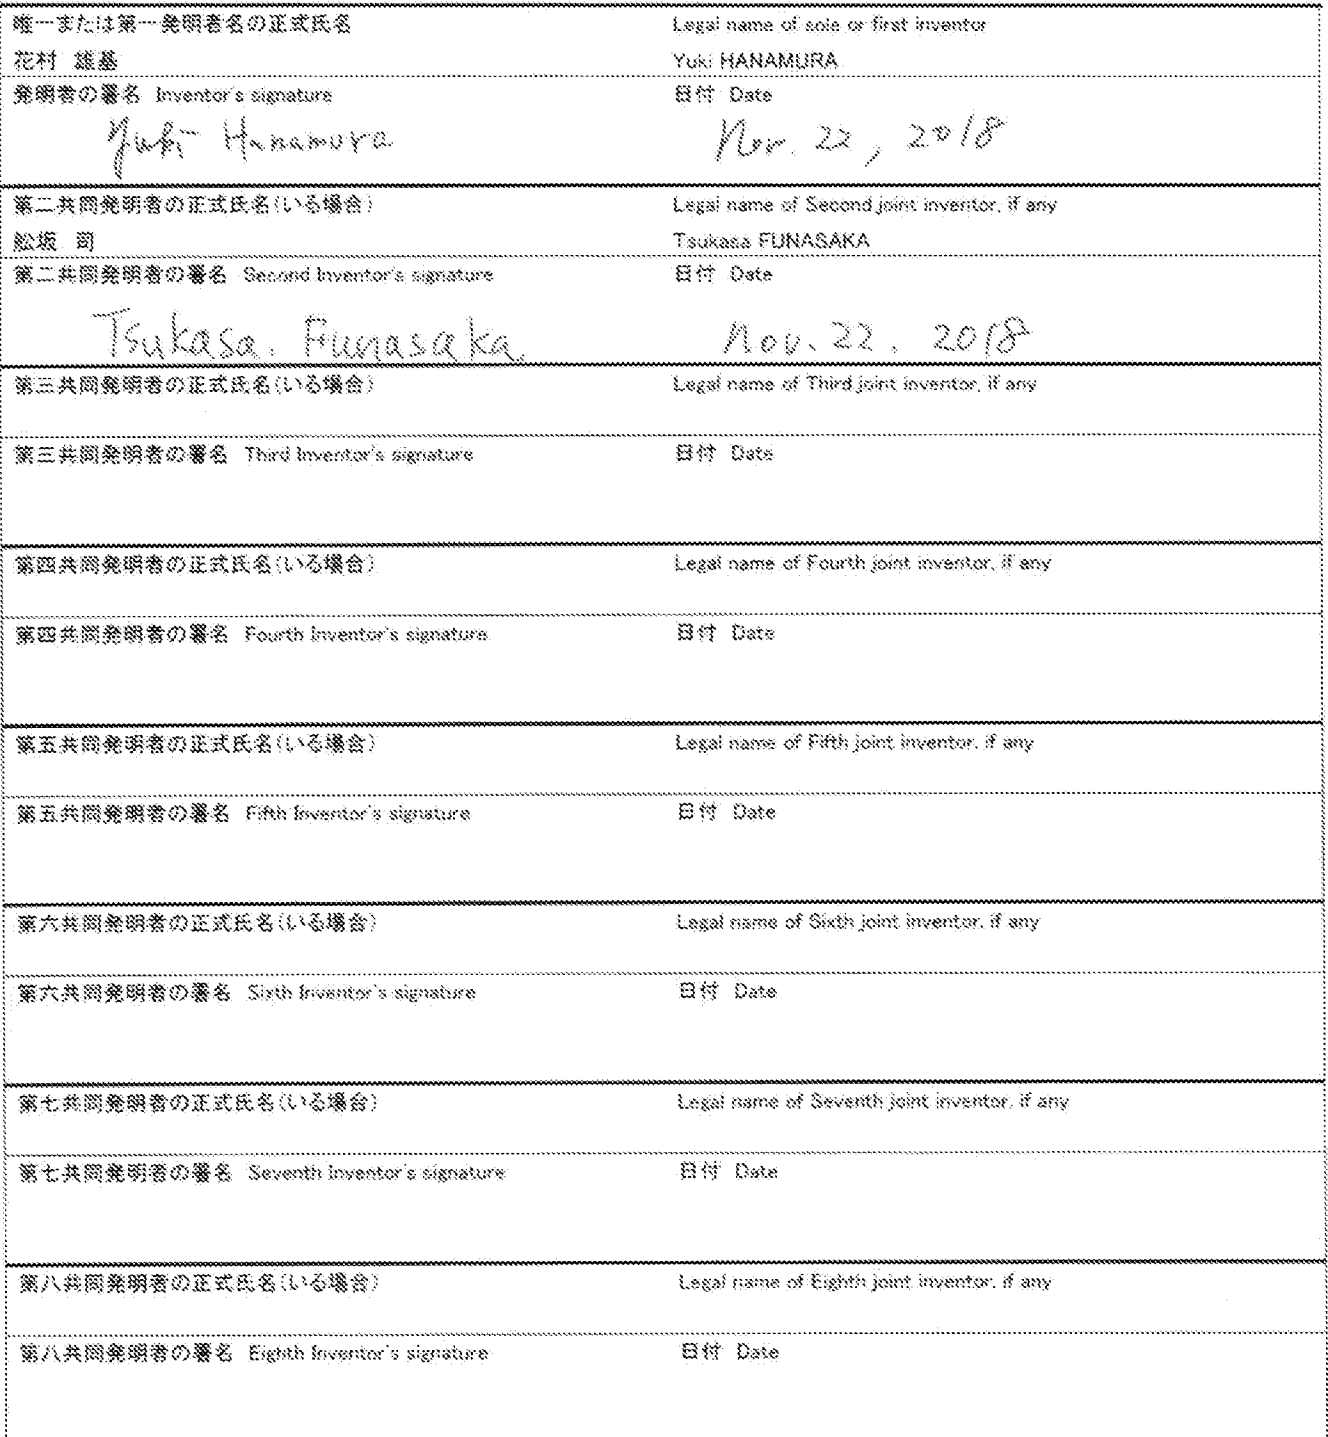 唯一または第一発明者名の正式氏名 Legal name of sole or first inventor
花村 雄基 Yuki HANAMURA
発明者の署名 Inventor's signature 日付 Date
Yuki Hanamura Nov. 22, 2018
第二共同発明者の正式氏名(いる場合) Legal name of Second joint inventor, if any
舩坂 司 Tsukasa FUNASAKA
第二共同発明者の署名 Second Inventor's signature 日付 Date
Tsukasa. Funasaka. Nov. 22. 2018
第三共同発明者の正式氏名(いる場合) Legal name of Third joint inventor, if any
第三共同発明者の署名 Third Inventor's signature 日付 Date
第四共同発明者の正式氏名(いる場合) Legal name of Fourth joint inventor, if any
第四共同発明者の署名 Fourth Inventor's signature 日付 Date
第五共同発明者の正式氏名(いる場合) Legal name of Fifth joint inventor, if any
第五共同発明者の署名 Fifth Inventor's signature 日付 Date
第六共同発明者の正式氏名(いる場合) Legal name of Sixth joint inventor, if any
第六共同発明者の署名 Sixth Inventor's signature 日付 Date
第七共同発明者の正式氏名(いる場合) Legal name of Seventh joint inventor, if any
第七共同発明者の署名 Seventh Inventor's signature 日付 Date
第八共同発明者の正式氏名(いる場合) Legal name of Eighth joint inventor, if any
第八共同発明者の署名 Eighth Inventor's signature 日付 Date